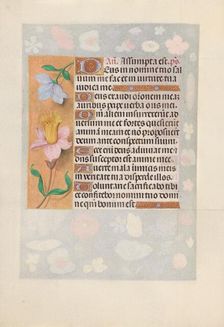 Añ. Assumpta est. ps
Deus in nomine tuo sal
uum me fac et in uirtute tua iu
dica me
Deus exaudi orationem meam
auribus percipe uerba oris mei
insurrexerunt aduer
sum me et fortes quesierunt
animam meam et non proposuerunt
deum ante conspectum suum
Ecce enim deus adiuuat me et do
minus susceptor est anime mee
mala inimicis meis
in ueritate tua disperde illos
Voluntarie sacrificabo tibi
et confitebor nomini tuo domine
quoniam bonum est